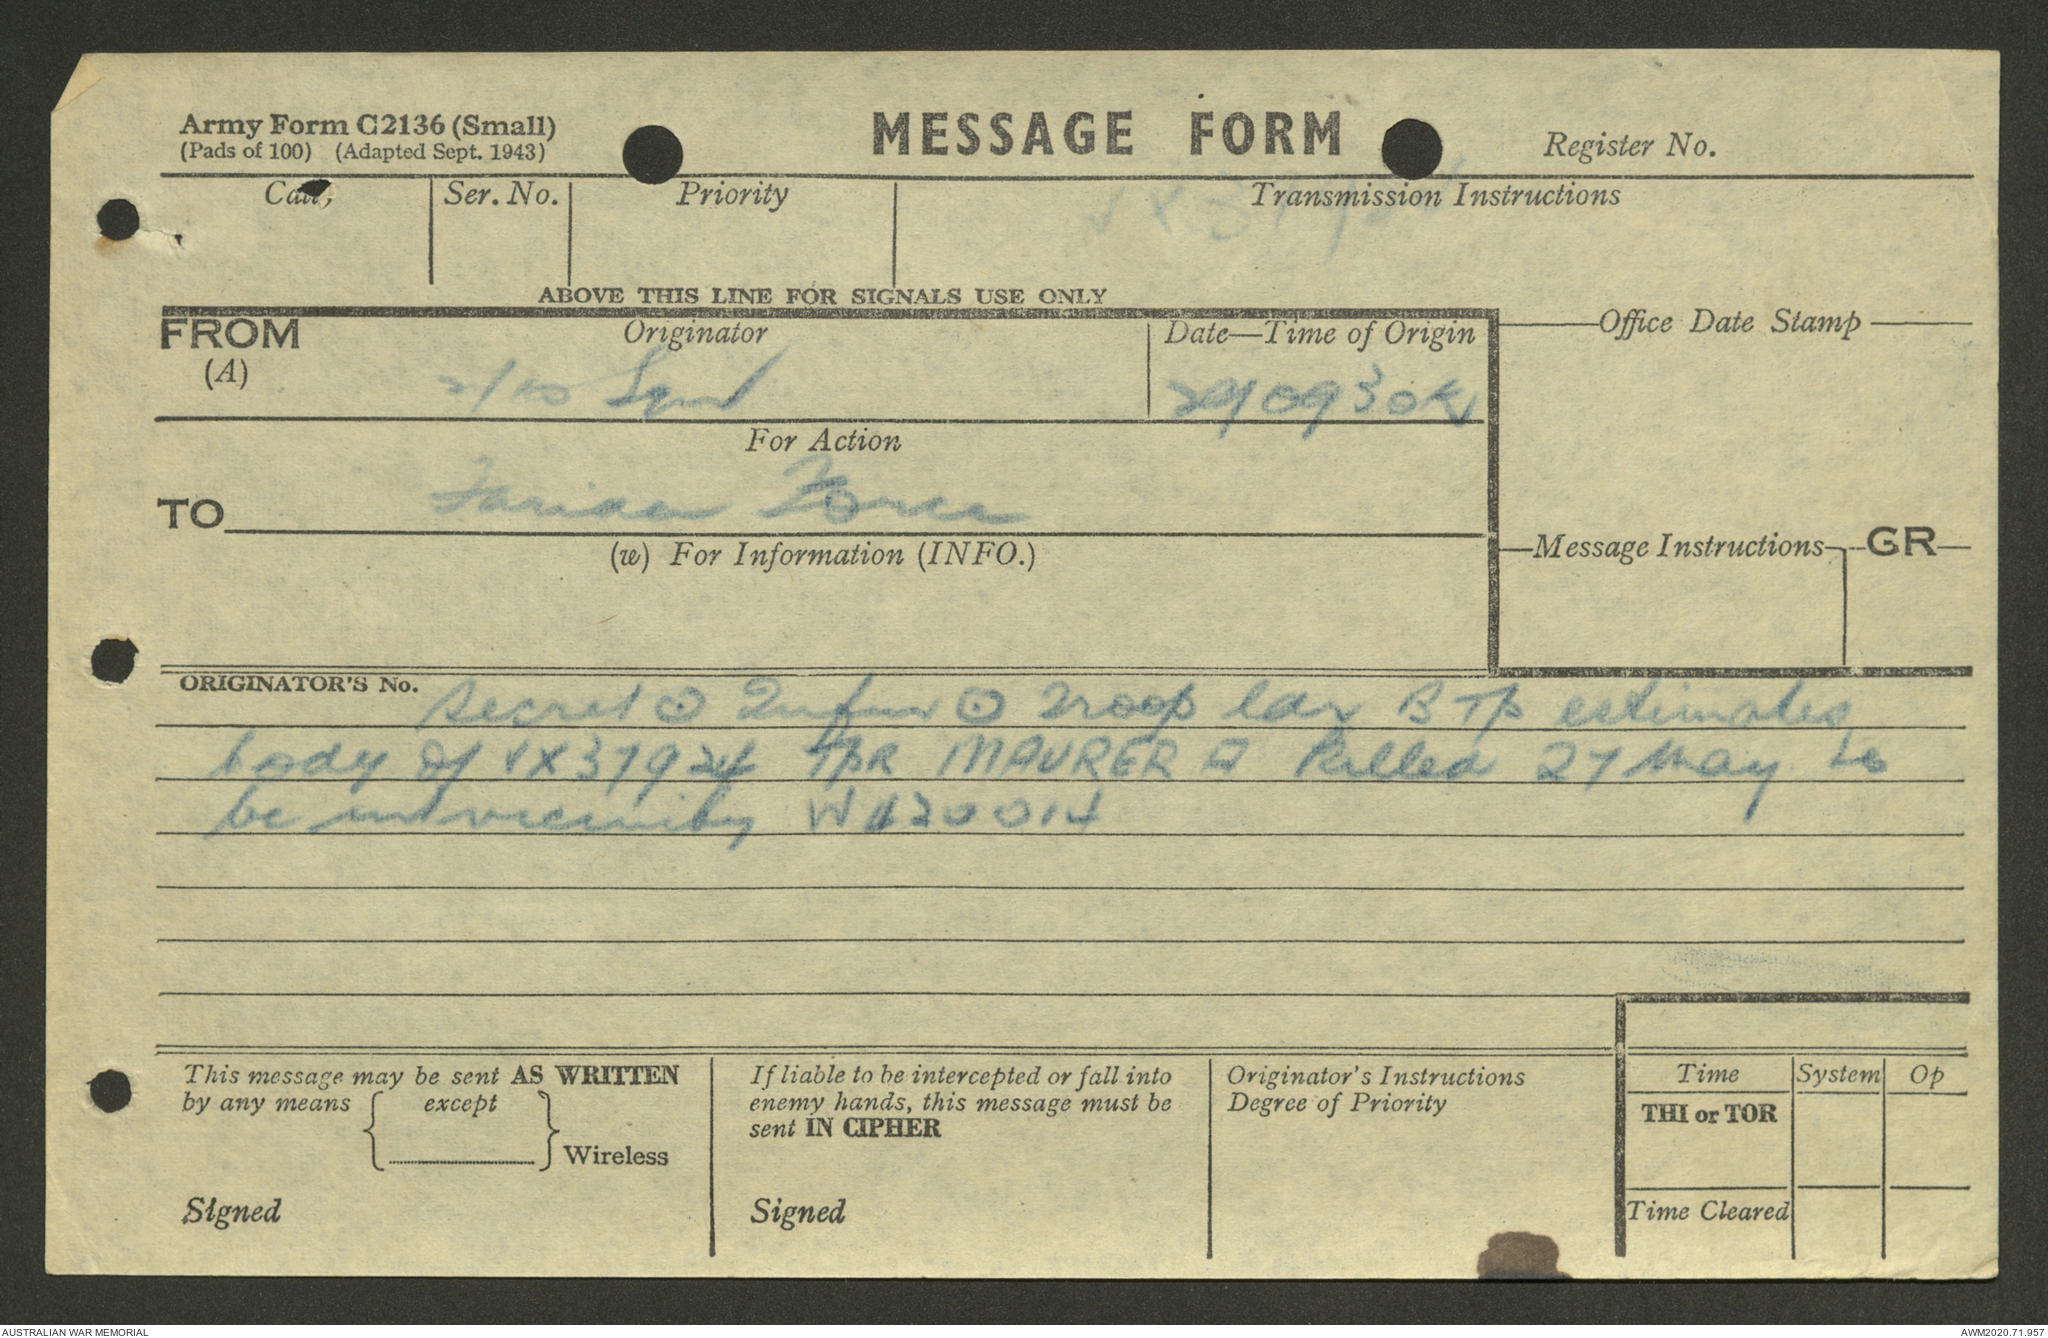 Army Form C2136 (Small)
(Pads of 100) (Adapted Sept. 1943)
MESSAGE FORM
Register No.
Call,
Ser. No.
Priority
Transmission Instructions
ABOVE THIS LINE FOR SIGNALS USE ONLY
FROM
(A)
Originator
2/10 Sqn
Date—Time of Origin
290930K
Office Date Stamp
For Action
TO
Farida Force
(w) For Information (INFO.)
Message Instructions
GR
ORIGINATOR'S No.
Secret ⊙ Infm ⊙ Troop ldr B Tp estimates
body of VX37924 TPR MAURER A killed 27 May to
be in vicinity
This message may be sent AS WRITTEN
by any means except
Wireless
Signed
If liable to be intercepted or fall into
enemy hands, this message must be
sent IN CIPHER
Signed
Originator's Instructions
Degree of Priority
Time
System
Op
THI or TOR
Time Cleared
AUSTRALIAN WAR MEMORIAL
AWM2020.71.957